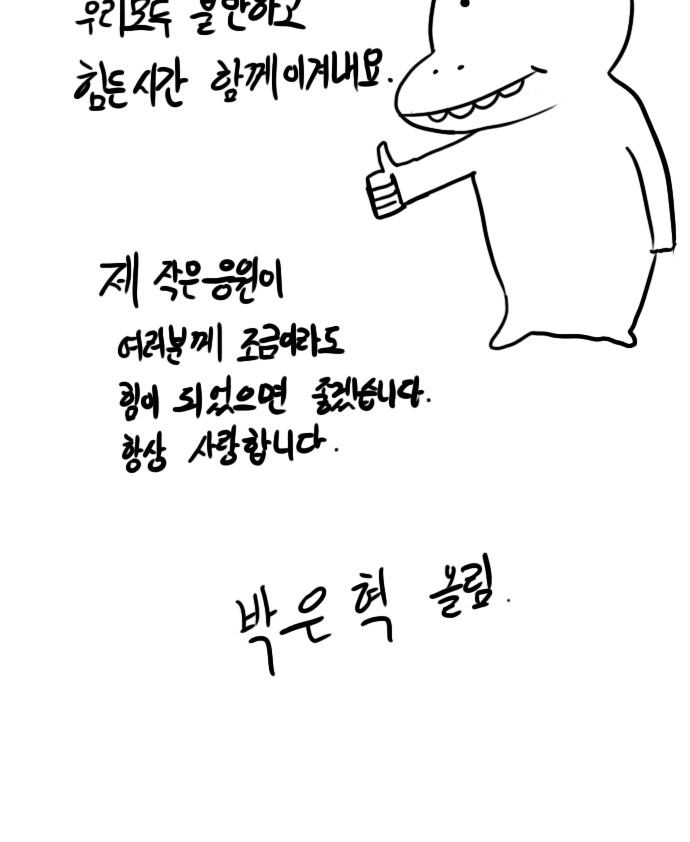 우리모두 불안하고
힘든시간 함께이겨내요.
제 작은응원이
여러분께 조금이라도
힘이 되었으면 좋겠습니다.
항상 사랑합니다.
박은혁 올림.